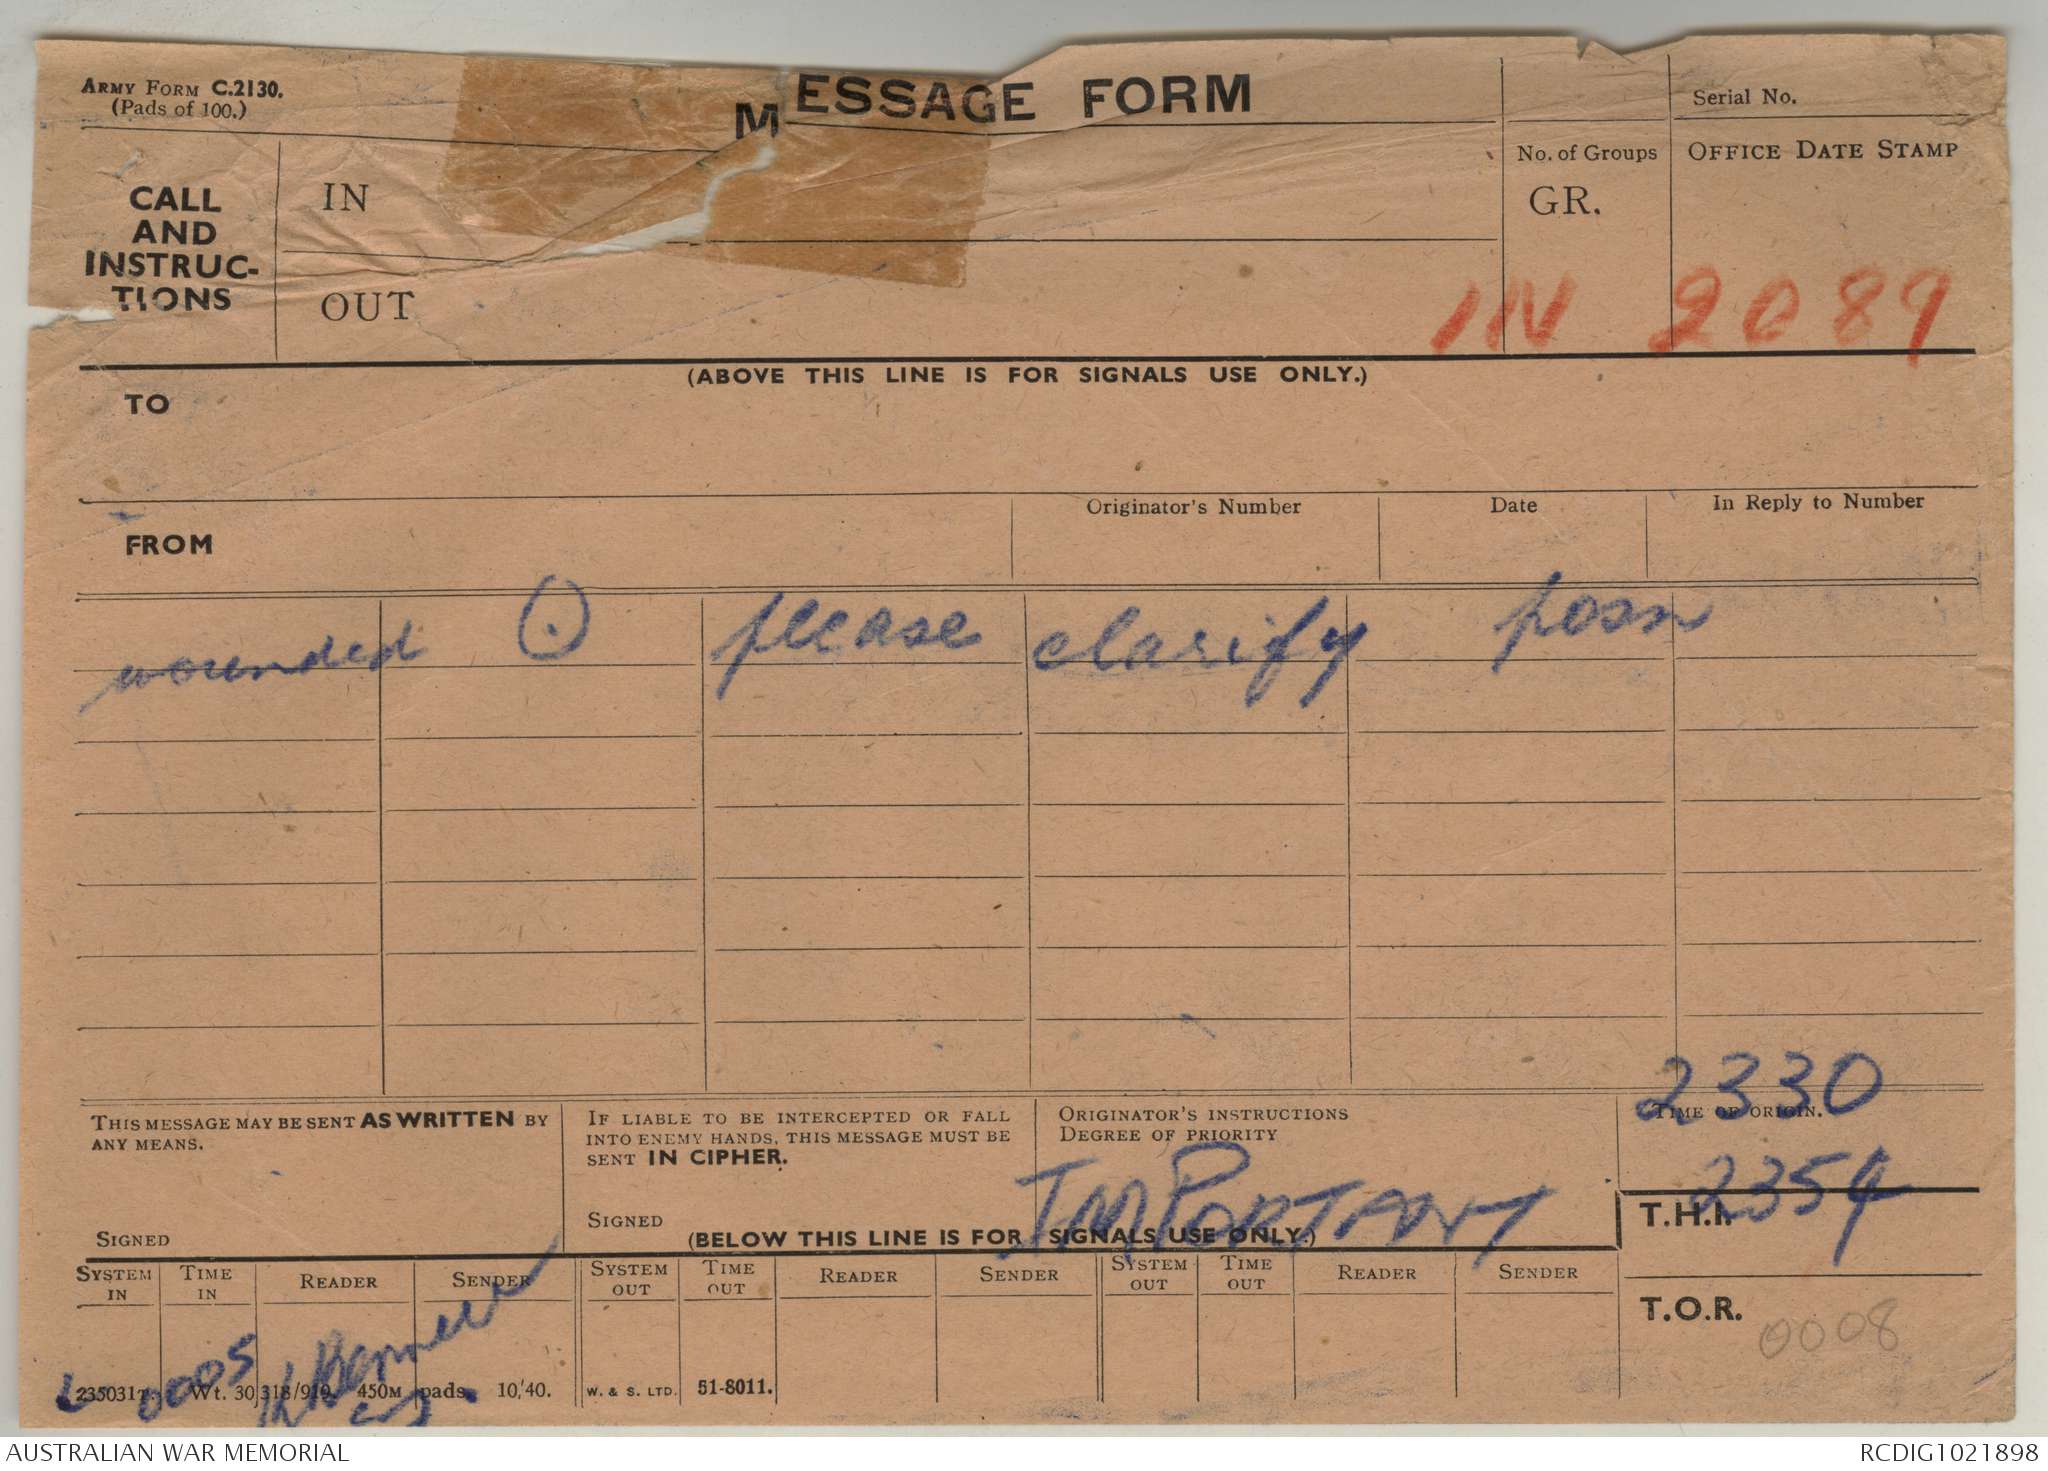 ARMY FORM C.2130.
(Pads of 100.)
MESSAGE FORM
Serial No.
CALL AND INSTRUC-TIONS
IN
OUT
No. of Groups
GR.
OFFICE DATE STAMP
IN 2089
(ABOVE THIS LINE IS FOR SIGNALS USE ONLY.)
TO
FROM
Originator's Number
Date
In Reply to Number
wounded (.) please clarify posn
2330
THIS MESSAGE MAY BE SENT AS WRITTEN BY
ANY MEANS.
SIGNED
IF LIABLE TO BE INTERCEPTED OR FALL
INTO ENEMY HANDS, THIS MESSAGE MUST BE
SENT IN CIPHER.
SIGNED
ORIGINATOR'S INSTRUCTIONS
DEGREE OF PRIORITY
IMPORTANT
TIME OF ORIGIN.
T.H.I. 2354
(BELOW THIS LINE IS FOR SIGNALS USE ONLY.)
SYSTEM IN
TIME IN
READER
SENDER
SYSTEM OUT
TIME OUT
READER
SENDER
SYSTEM OUT
TIME OUT
READER
SENDER
T.O.R. 0008
0005
235031T. Wt. 30,318/919. 450M pads. 10/40. W. & S. LTD. 51-8011.
AUSTRALIAN WAR MEMORIAL
RCDIG1021898